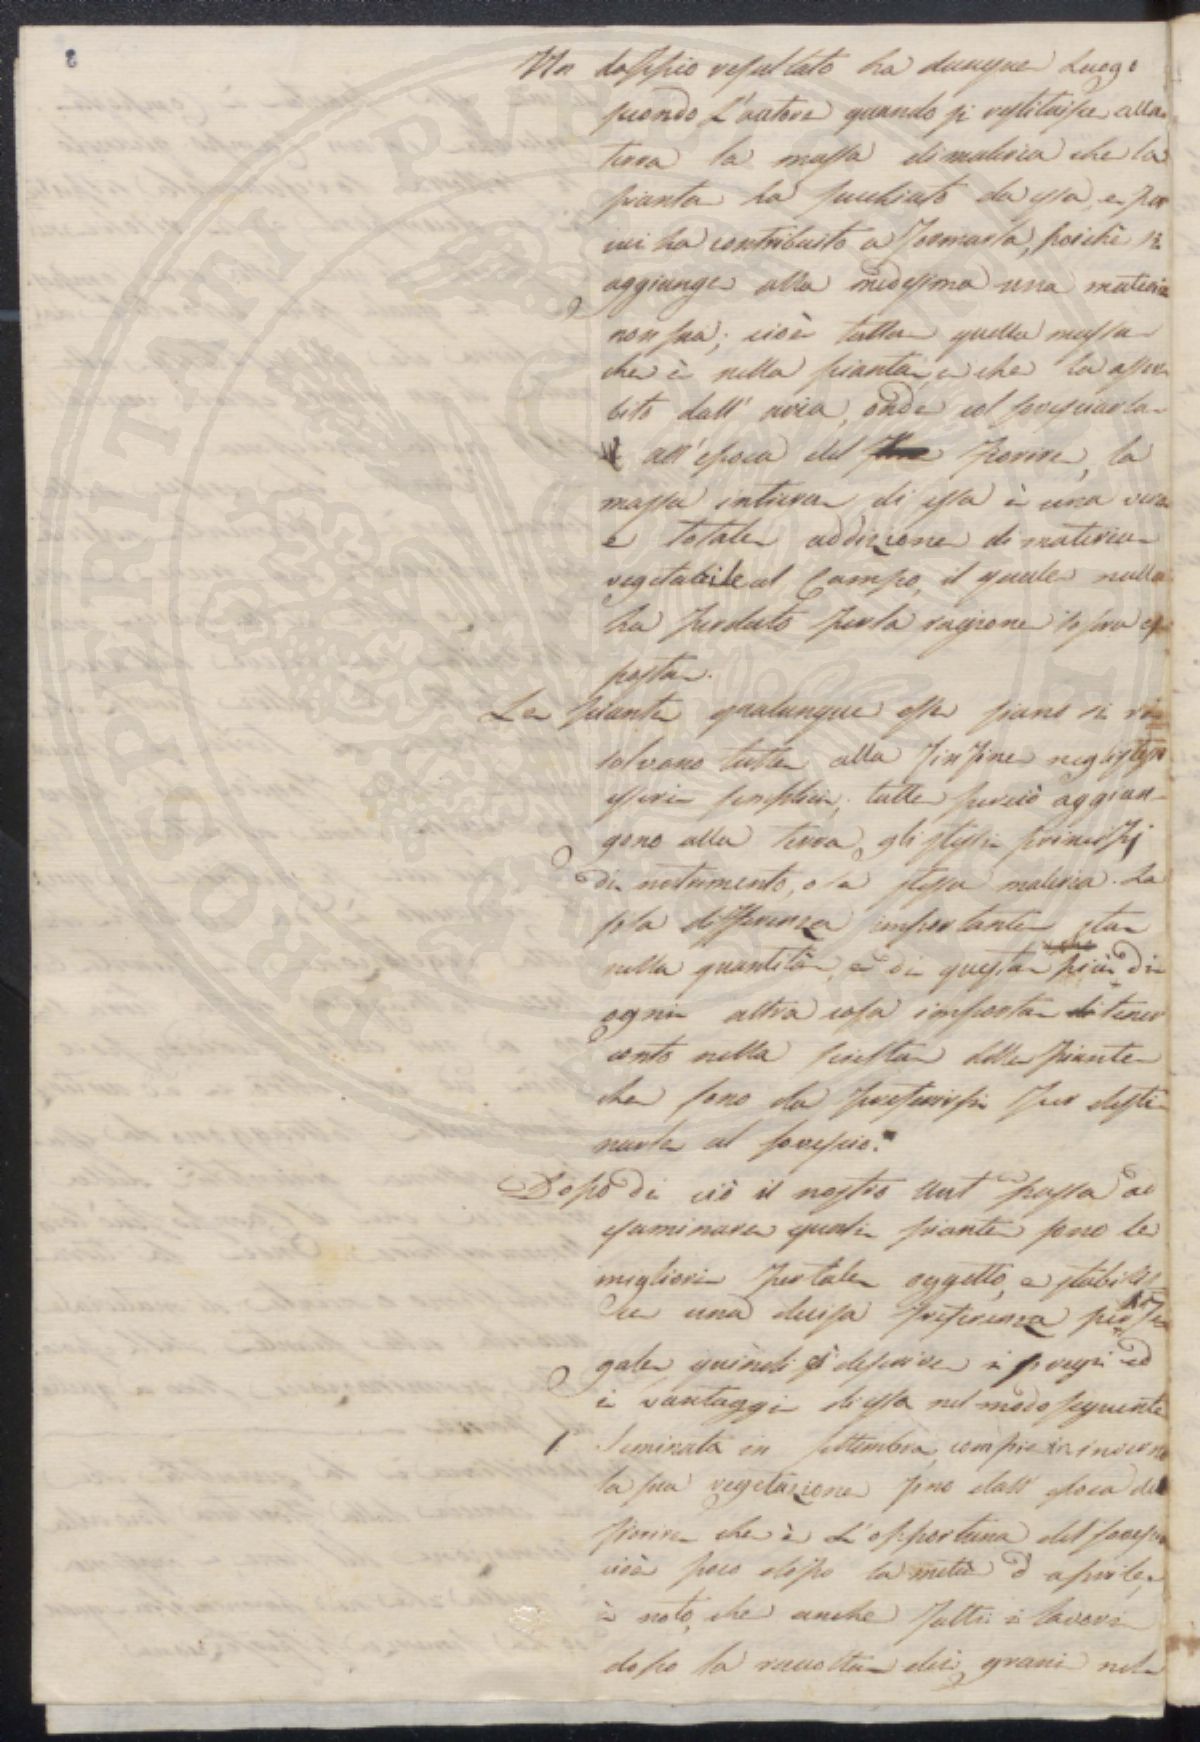 8
Un doppio resultato ha dunque Luogo
secondo L'autore quando si restituisce alla
terra la massa di materia che la
pianta ha succhiato da essa, e per
cui ha contribuito a formarla, poichè si
aggiunge alla medesima una materia
non sua; cioè tutta quella massa
che è nella pianta, e che la assor
bito dall'aria, onde col sovesciarla
all'epoca del fiorire, la
massa intiera di essa è una vera
e totale addizione di materia
vegetabile al Campo, il quale nulla
ha perduto per la ragione sopra es
posta.
Le piante qualunque esse siano si ri
solvano tutte alla fin fine negli stessi
esseri semplici; tutte perciò aggiun-
gono alla terra, gli stessi principj
di nutrimento, o la stessa materia. La
sola differenza importante sta
nella quantità, e di questa più di
ogni altra cosa importa di tener
conto nella scelta delle piante
che sono da preferirsi per desti
narle al sovescio.
Dopo di ciò il nostro Aut passa ad
esaminare quali piante sono le
migliori per tale oggetto, e stabilis
ce una decisa preferenza per la se
gale, quindi descrive i pregi ed
i vantaggi di essa nel modo seguente
1 Seminata in settembre, compie in inverno
la sua vegetazione fino all'epoca del
fiorire che è L'opportuna del sovescio
cioè poco dopo la metà d'aprile,
è noto, che anche fatti i lavori
dopo la raccolta dei grani nel